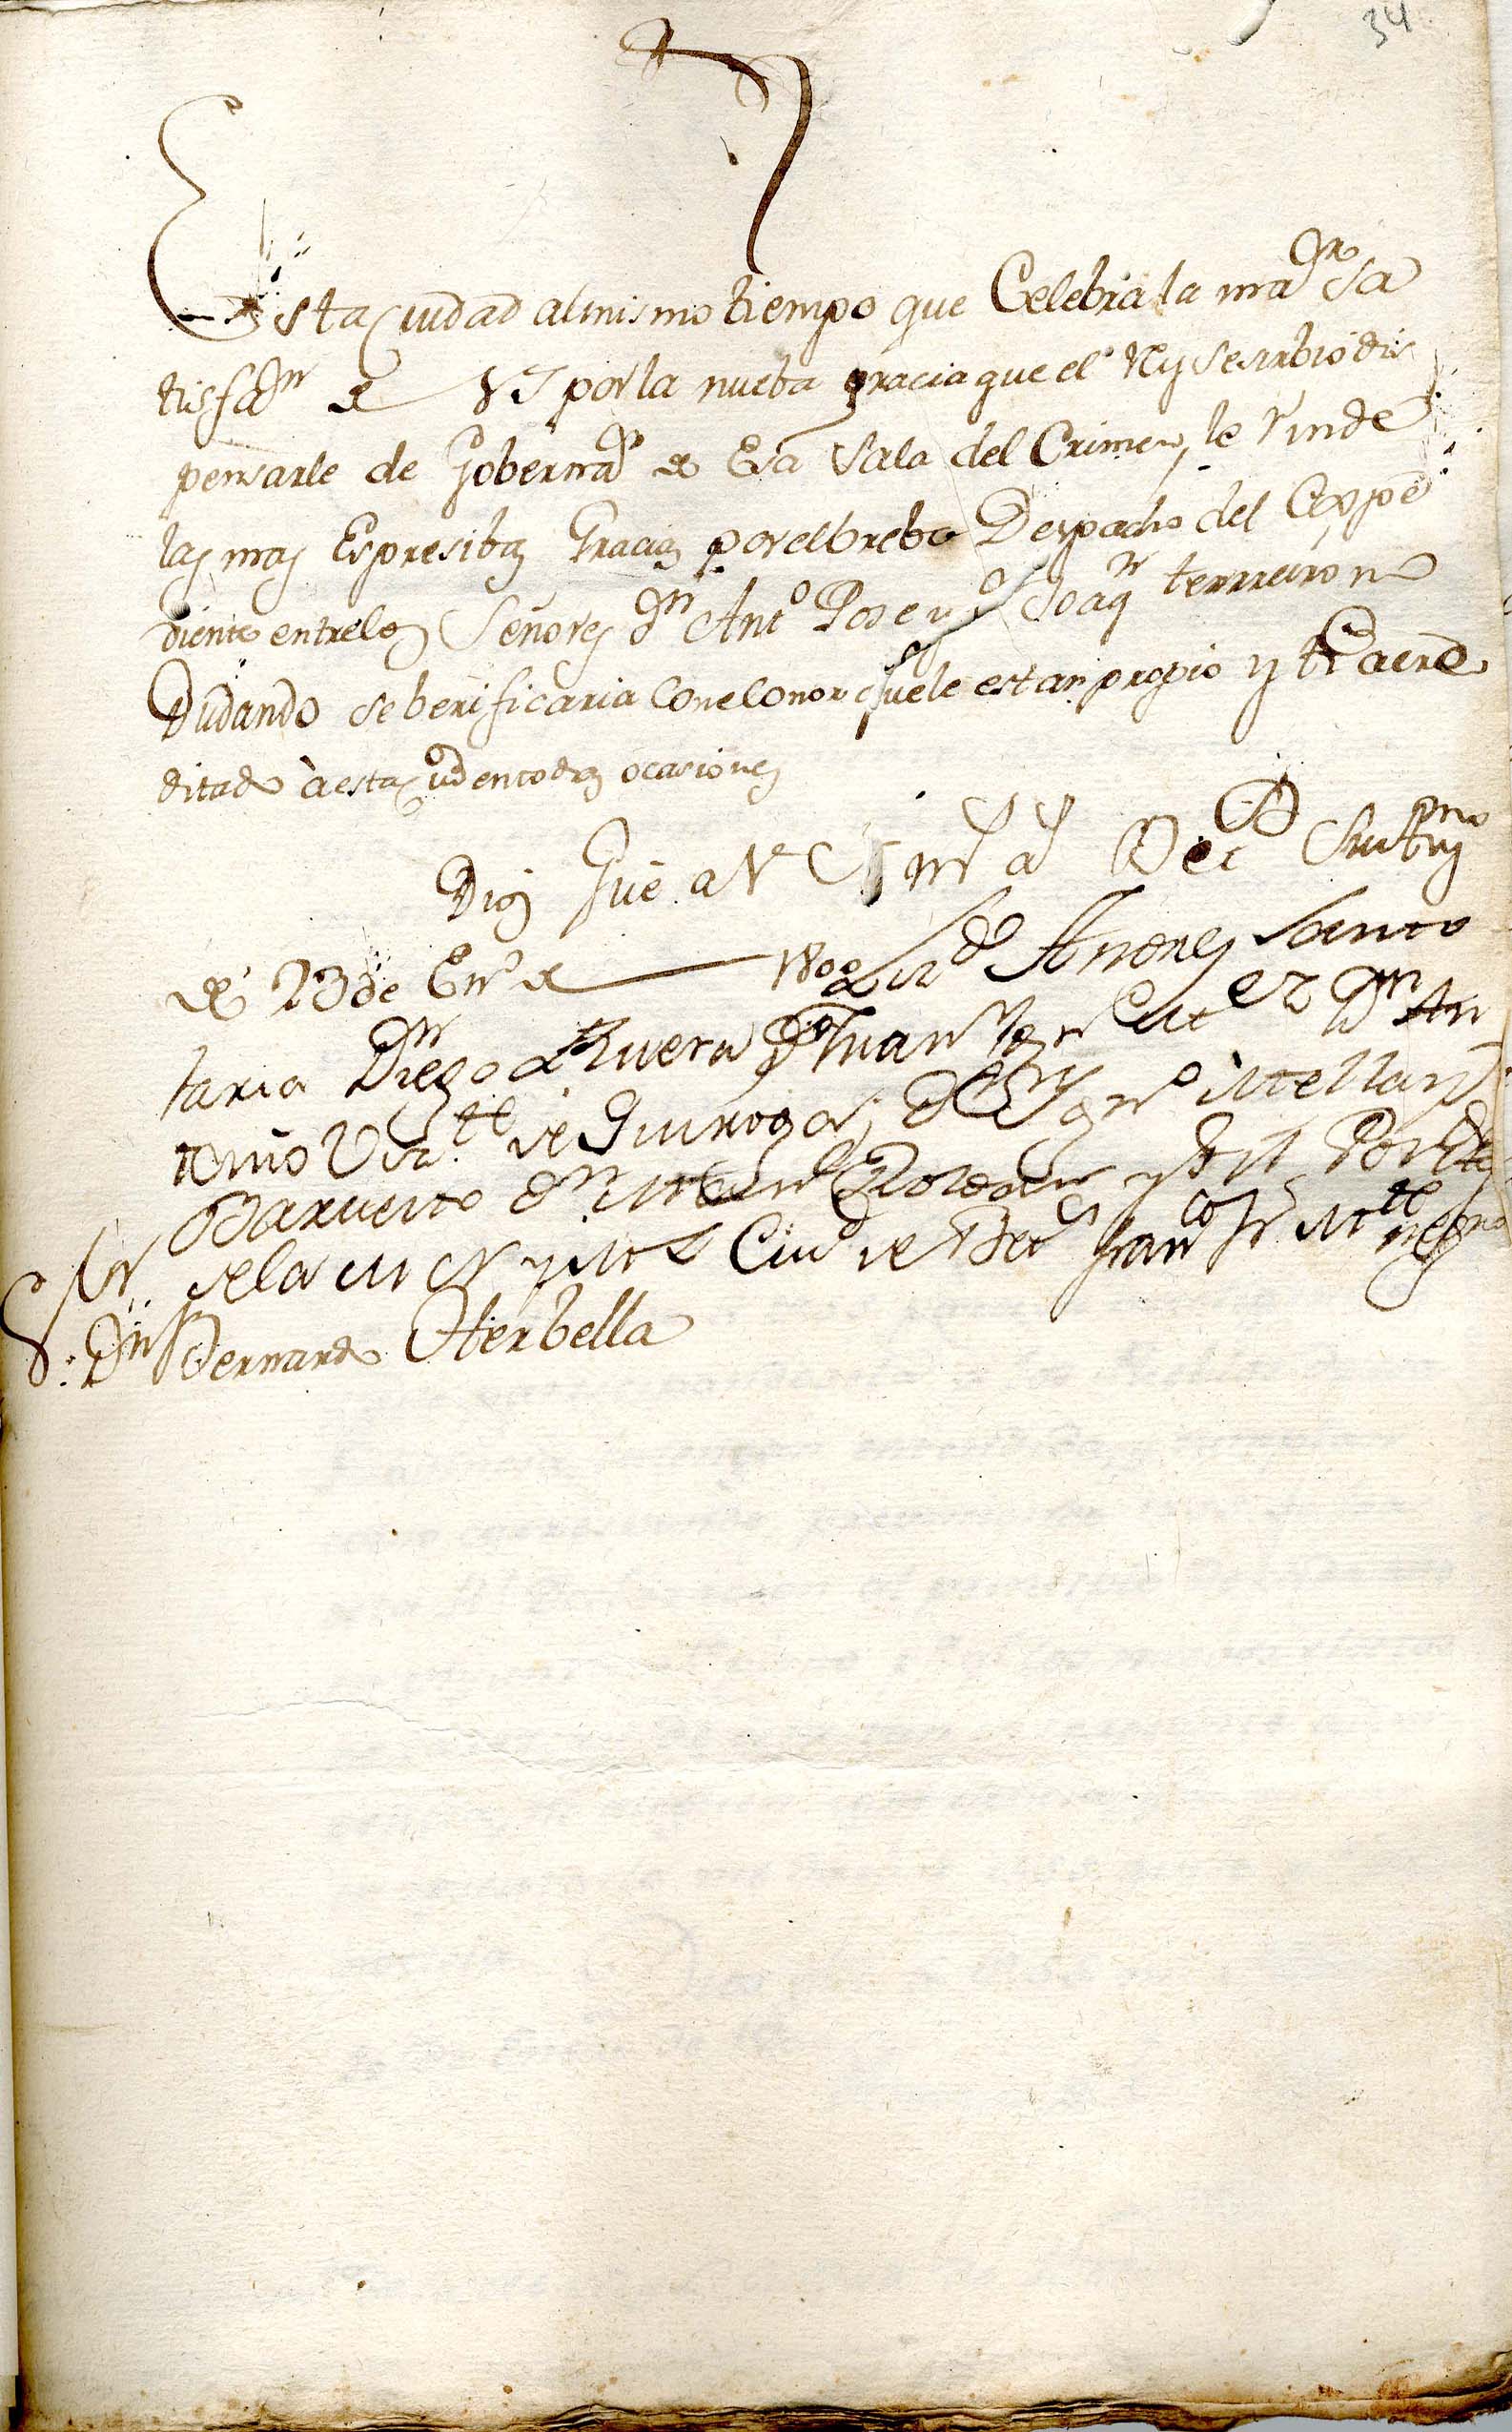 34
Esta Ciudad al mismo tiempo que Celebra la maor Sa
tisfaon de VS por la nueba gracia que el Rey se sirbio dis
pensarle de Gobernador de Esa Sala del Crimen, le rinde
las mas Espresibas Gracias por el brebe Despacho del Expe
diente entre los Señores Dn Anto Pose y Dn Joaqn terrreiro no
Dudando se berificaria con el onor que le es tan propio y tiene acre
ditado à esta Ciud en todas ocasiones
Dios Gue a VS ms as Betos Su Aymto
de 23 de Eno de 1800 Lizdo Andres Santa
maria Dn Diego de Rivera Dn Juan Dn An
tonio Vizte de Quiroga
Barueito Dn Roldan y José
de la M N y M L Ciud de Betos Franco
Sr Dn Bernardo Herbella